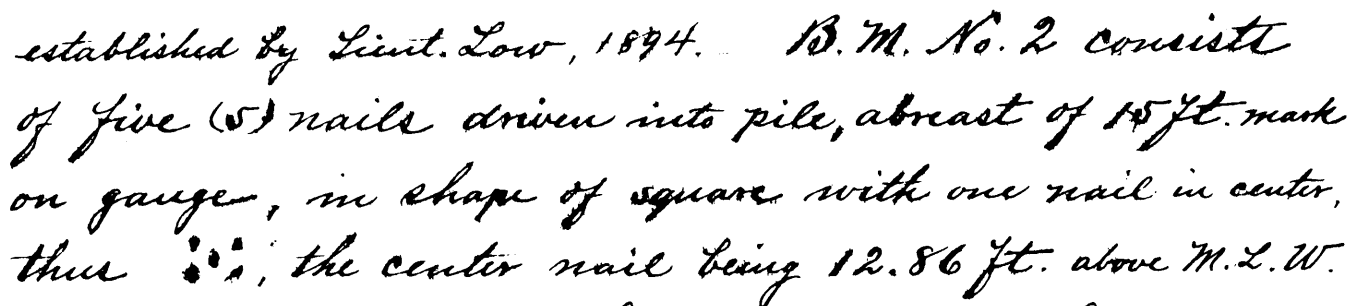 established by Lieut. Low, 1894. B.M. No. 2 consists
of five (5) nails driven into pile, abreast of 15 ft. mark
on gauge, in shape of square with one nail in center,
thus ⁙, the center nail being 12.86 ft. above M.L.W.